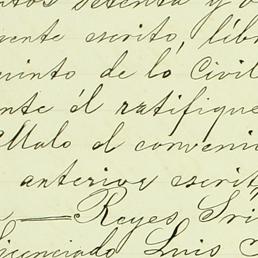 setenta y o
ente escrito, líbr
uinto de lo Civil
nte él ratifique
Malo el convenio
anterior escrit
Reyes Sri
licenciado Luis